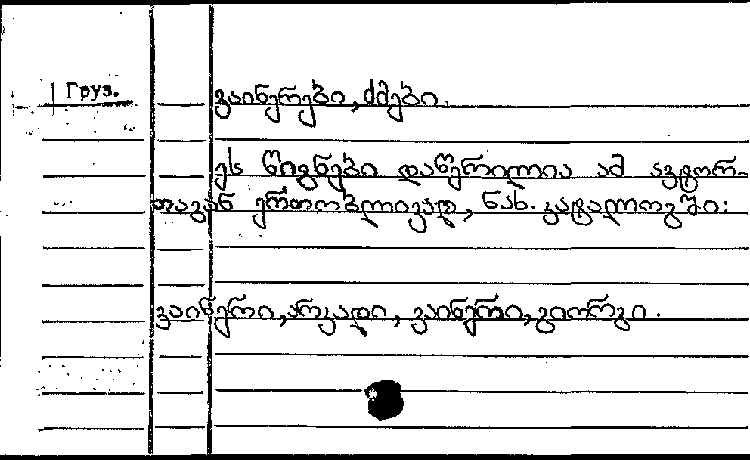 Груз.
ვაინერები, ძმები.
ეს წიგნები დაწერილია ამ ავტორ-
თაგან ერთობლივად, ნახ. კატალოგში:
ვაინერი, არკადი, ვაინერი, გიორგი.